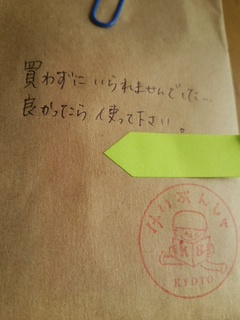 買わずにいられませんでした…
良かったら 使って下さい。
けいぶんしゃ
KB
KYOTO